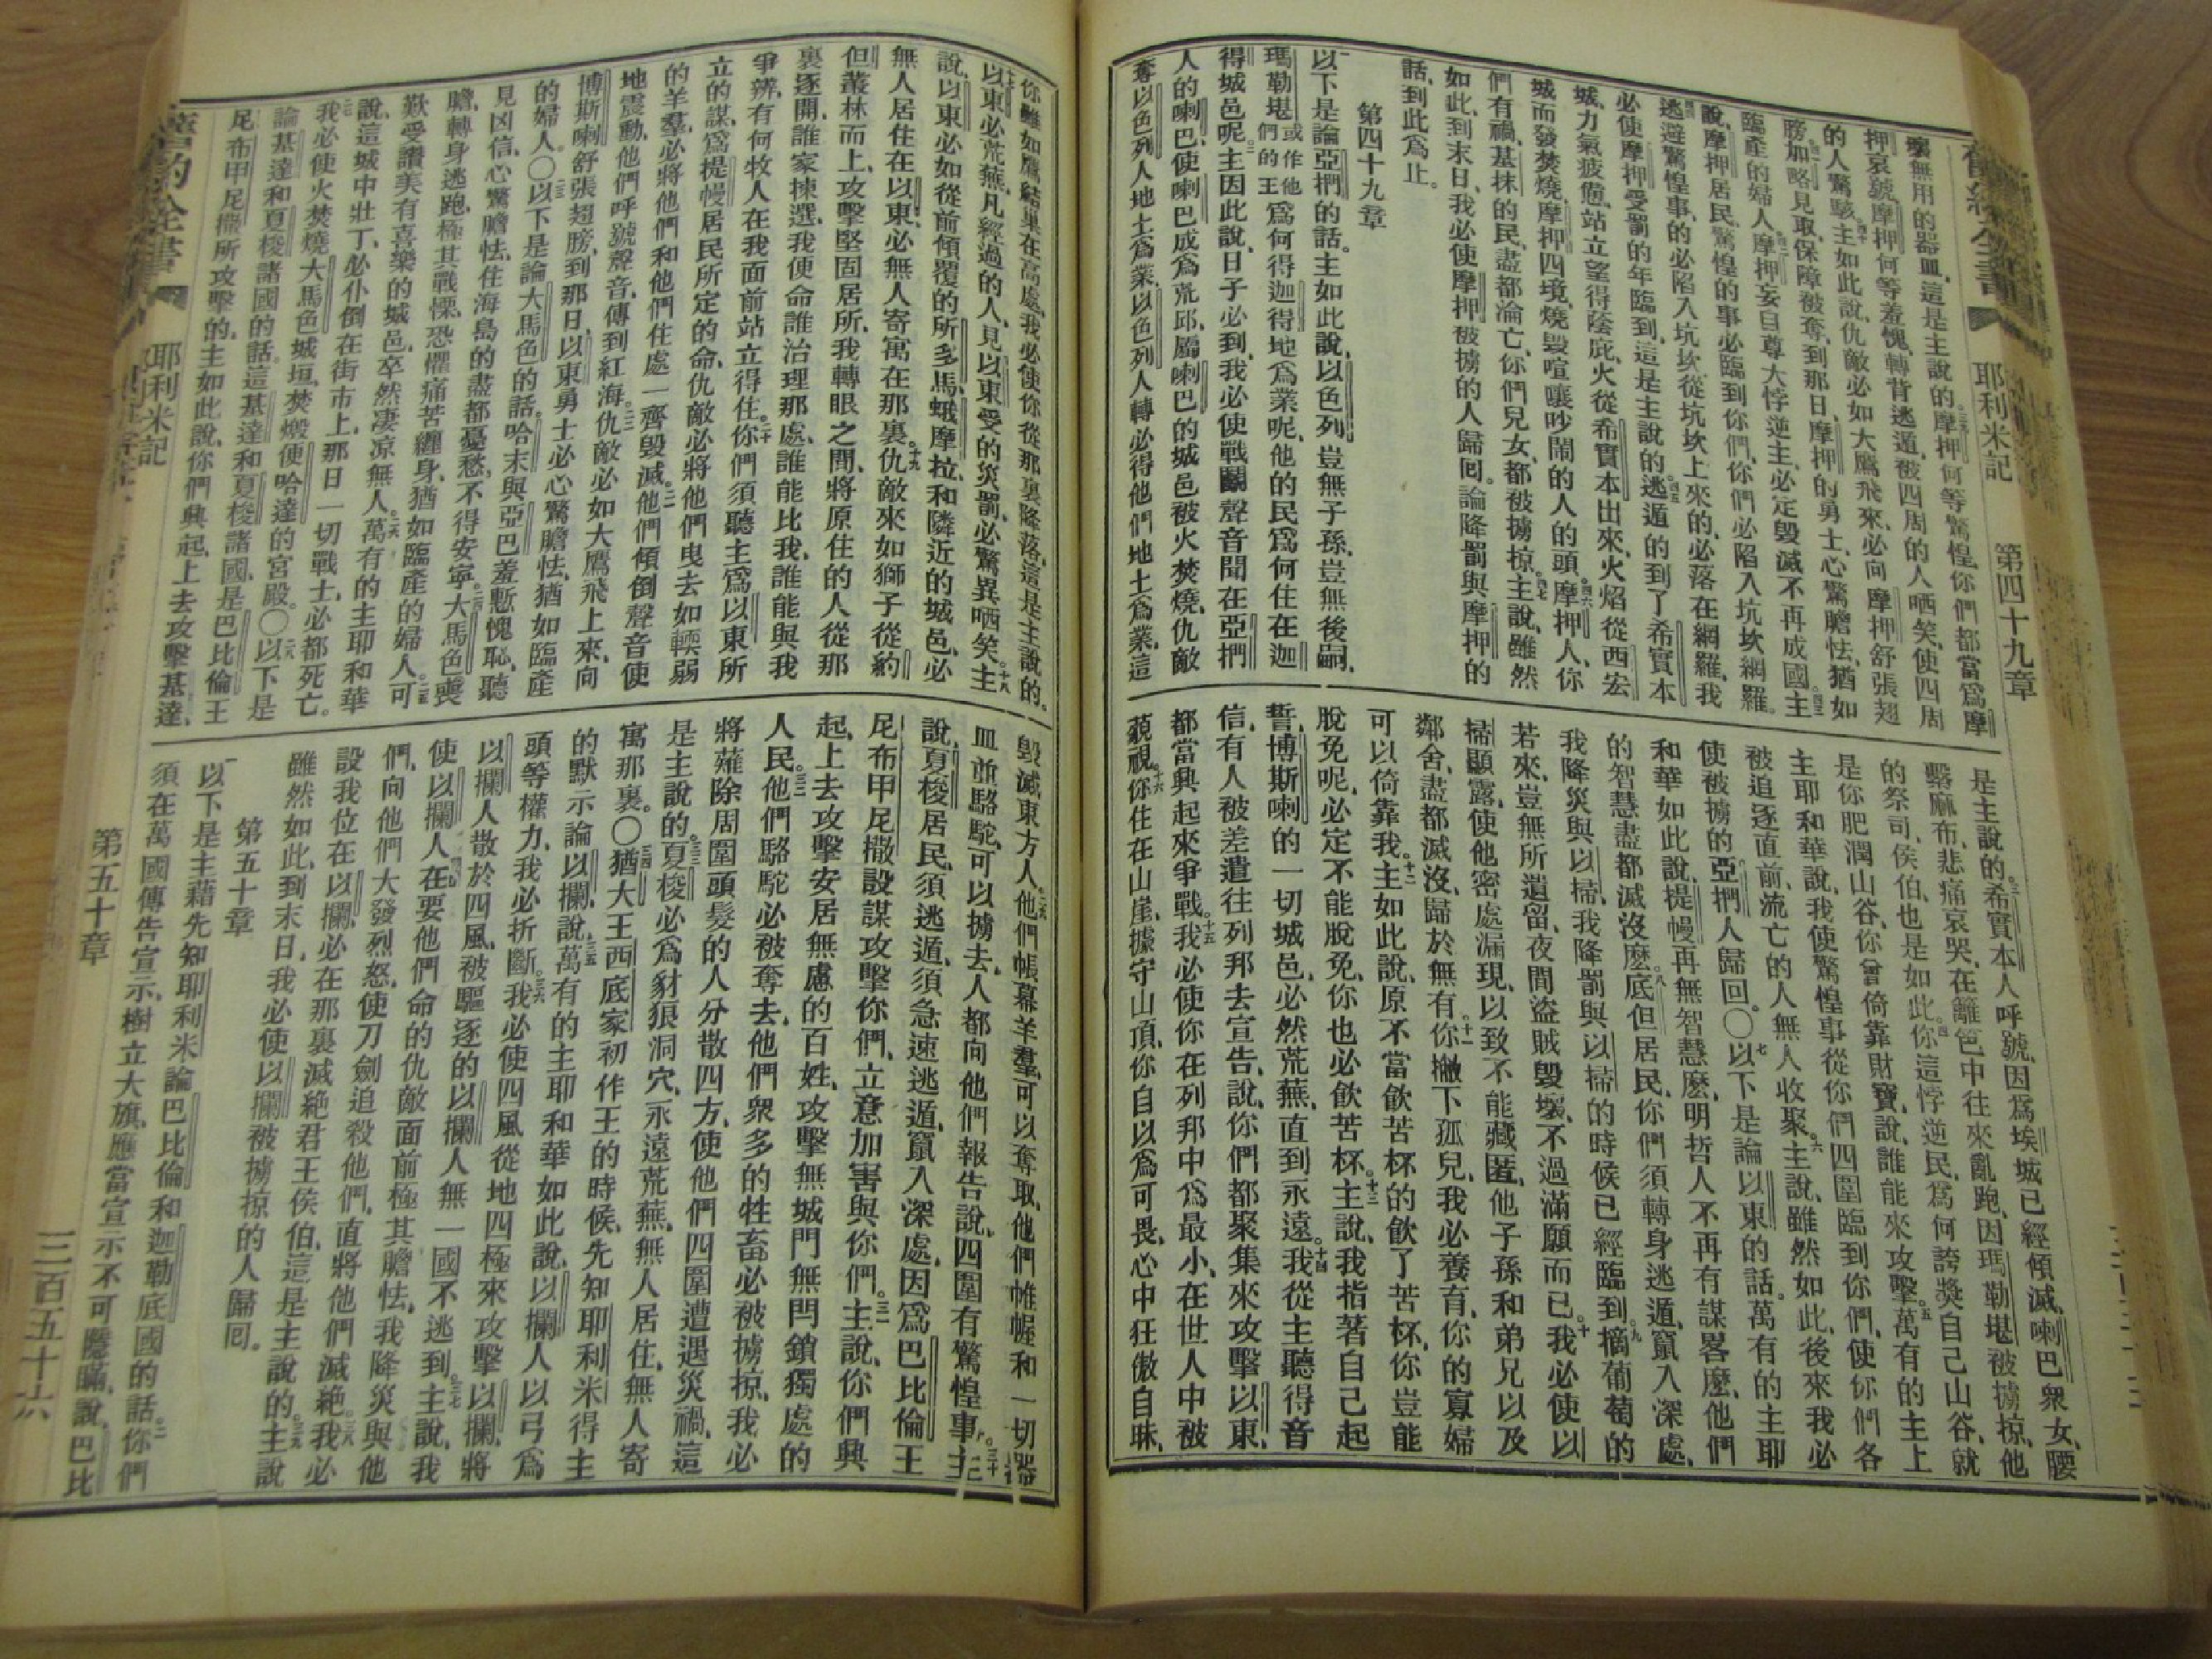 耶利米記
第四十九章
壞無用的器皿、這是主說的。三九摩押何等驚惶、你們都當爲摩
押哀號、摩押何等羞愧、轉背逃遁、被四周的人哂笑、使四周
的人驚駭。四十主如此說、仇敵必如大鷹飛來、必向摩押舒張翅
膀。四一加略見取、保障被奪、到那日、摩押的勇士、心驚膽怯、猶如
臨產的婦人。四二摩押妄自尊大悖逆主、必定毀滅不再成國。四三主
說、摩押居民、驚惶的事必臨到你們、你們必陷入坑坎網羅。
四四逃避驚惶事的、必陷入坑坎、從坑坎上來的、必落在網羅、我
必使摩押受罰的年臨到、這是主說的。四五逃遁的到了希實本
城、力氣疲憊、站立望得蔭庇、火從希實本出來、火焰從西宏
城而發、焚燒摩押四境、燒毀喧嚷吵鬧的人的頭。四六摩押人、你
們有禍、基抹的民、盡都淪亡、你們兒女、都被擄掠。四七主說、雖然
如此、到末日、我必使摩押被擄的人歸回。論降罰與摩押的
話、到此爲止。
第四十九章
一以下是論亞捫的話。主如此說、以色列豈無子孫、豈無後嗣、
瑪勒堪或作他們的王爲何得迦得地爲業呢、他的民爲何住在迦
得城邑呢。二主因此說、日子必到、我必使戰鬭聲音聞在亞捫
人的喇巴、使喇巴成爲荒邱、屬喇巴的城邑被火焚燒、仇敵
奪以色列人地土爲業、以色列人轉必得他們地土爲業、這
是主說的。三希實本人呼號、因爲埃城已經傾滅、喇巴衆女、腰
繫麻布、悲痛哀哭、在籬笆中往來亂跑、因瑪勒堪被擄掠、他
的祭司、侯伯、也是如此。四你這悖逆民、爲何誇獎自己山谷、就
是你肥潤山谷、你曾倚靠財寶、說、誰能來攻擊。五萬有的主上
主耶和華說、我使驚惶事從你們四圍臨到你們、使你們各
被追逐直前、流亡的人無人收聚。六主說、雖然如此、後來我必
使被擄的亞捫人歸回。〇七以下是論以東的話。萬有的主耶
和華如此說、提幔再無智慧麽、明哲人不再有謀畧麽、他們
的智慧盡都滅沒麽。八底但居民、你們須轉身逃遁、竄入深處、
我降災與以掃、我降罰與以掃的時候已經臨到。九摘葡萄的
若來、豈無所遺留、夜間盜賊毀壞、不過滿願而已。十我必使以
掃顯露、使他密處漏現、以致不能藏匿、他子孫和弟兄以及
鄰舍、盡都滅沒、歸於無有。十一你撇下孤兒、我必養育、你的寡婦
可以倚靠我。十二主如此說、原不當飲苦杯的飲了苦杯、你豈能
脫免呢、必定不能脫免、你也必飲苦杯。十三主說、我指著自己起
誓、博斯喇的一切城邑、必然荒蕪、直到永遠。十四我從主聽得音
信、有人被差遣往列邦去宣告、說、你們都聚集來攻擊以東、
都當興起來爭戰。十五我必使你在列邦中爲最小、在世人中被
藐視。十六你住在山崖、據守山頂、你自以爲可畏、心中狂傲自昧、
你雖如鷹結巢在高處、我必使你從那裏降落、這是主說的。
十七以東必荒蕪、凡經過的人、見以東受的災罰、必驚異哂笑。十八主
說、以東必如從前傾覆的所多馬、蛾摩拉、和隣近的城邑、必
無人居住在以東、必無人寄寓在那裏。十九仇敵來如獅子從約
但叢林而上、攻擊堅固居所、我轉眼之間、將原住的人從那
裏逐開、誰家揀選、我便命誰治理那處、誰能比我、誰能與我
爭辨、有何牧人在我面前站立得住。二十你們須聽主爲以東所
立的謀、爲提幔居民所定的命、仇敵必將他們曳去如輭弱
的羊羣、必將他們和他們住處一齊毀滅。二一他們傾倒聲音使
地震動、他們呼號聲音、傳到紅海。二二仇敵必如大鷹飛上來、向
博斯喇舒張翅膀、到那日、以東勇士必心驚膽怯、猶如臨產
的婦人。〇二三以下是論大馬色的話。哈末與亞巴羞慙愧恥、聽
見凶信、心驚膽怯、住海島的盡都憂愁、不得安寧。二四大馬色喪
膽、轉身逃跑、極其戰慄、恐懼痛苦纏身、猶如臨產的婦人。二五可
歎受讚美有喜樂的城邑、卒然凄凉無人。二六萬有的主耶和華
說、這城中壯丁、必仆倒在街市上、那日一切戰士、必都死亡。
二七我必使火焚燒大馬色城垣、焚燬便哈達的宮殿。〇二八以下是
論基達和夏梭諸國的話、這基達和夏梭諸國、是巴比倫王
尼布甲尼撒所攻擊的、主如此說、你們興起、上去攻擊基達、
毀滅東方人。二九他們帳幕羊羣、可以奪取、他們帷幄和一切器
皿並駱駝、可以擄去、人都向他們報告說、四圍有驚惶事。三十主
說、夏梭居民、須逃遁、須急速逃遁、竄入深處、因爲巴比倫王
尼布甲尼撒設謀攻擊你們、立意加害與你們。三一主說、你們興
起、上去攻擊安居無慮的百姓、攻擊無城門無閂鎖獨處的
人民。三二他們駱駝必被奪去、他們衆多的牲畜必被擄掠、我必
將薙除周圍頭髮的人分散四方、使他們四圍遭遇災禍、這
是主說的。三三夏梭必爲豺狼洞穴、永遠荒蕪、無人居住、無人寄
寓那裏。〇三四猶大王西底家初作王的時候、先知耶利米得主
的默示論以攔、說、三五萬有的主耶和華如此說、以攔人以弓爲
頭等權力、我必折斷。三六我必使四風從地四極來攻擊以攔、將
以攔人散於四風、被驅逐的以攔人無一國不逃到。三七主說、我
使以攔人在要他們命的仇敵面前極其膽怯、我降災與他
們、向他們大發烈怒、使刀劍追殺他們、直將他們滅絶。三八我必
設我位在以攔、必在那裏滅絶君王侯伯、這是主說的。三九主說
雖然如此、到末日、我必使以攔被擄掠的人歸回。
第五十章
一以下是主藉先知耶利米論巴比倫和迦勒底國的話。二你們
須在萬國傳告宣示、樹立大旗、應當宣示不可隱瞞、說、巴比
耶利米記
第五十章
三百五十六